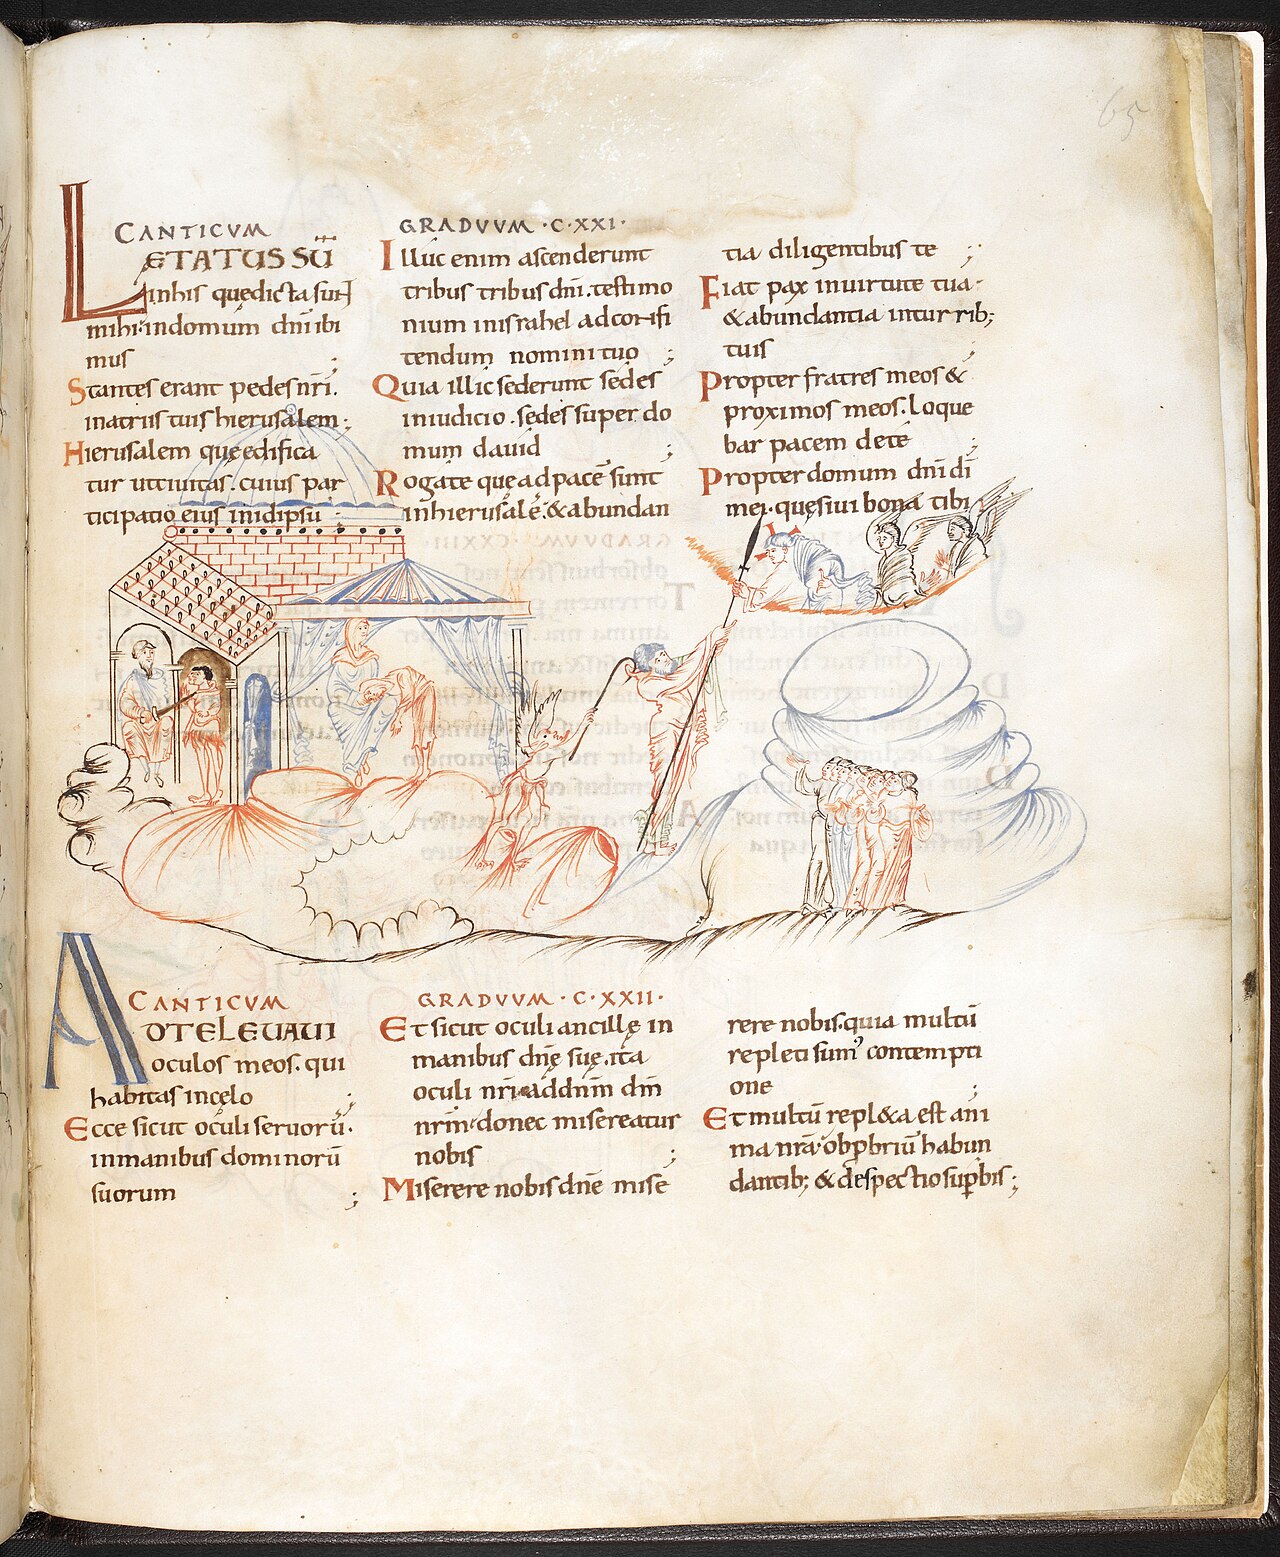 65
CANTICVM GRADVVM · C · XXI ·
LETATUS SŪ
in his que dicta sunt
mihi: in domum dn̄i ibi
mus ;
Stantes erant pedes nr̄i.
in atriis tuis hierusalem ;
Hierusalem que edifica
tur ut civitas. cuius par
ticipatio eius in idipsū
Illuc enim ascenderunt
tribus tribus dn̄i. testimo
nium in israhel ad confi
tendum nomini tuo ;
Quia illic sederunt sedes
in iudicio. sedes super do
mum dauid
Rogate que ad pacē sunt
in hierusalē. & abundan
tia diligentibus te ;
Fiat pax in uirtute tua.
& abundantia in turrib;
tuis ;
Propter fratres meos &
proximos meos. loque
bar pacem de te ;
Propter domum dn̄i dī
mei. quesiui bona tibi
CANTICVM GRADVVM · C · XXII ·
AD TE LEUAUI
oculos meos. qui
habitas in celo ;
Ecce sicut oculi seruorū.
in manibus dominorū
suorum ;
Et sicut oculi ancillę in
manibus dn̄ę suę. ita
oculi nr̄i ad dn̄m dm̄
nr̄m donec misereatur
nobis ;
Miserere nobis dn̄e mise
rere nobis. quia multū
repleti sum' contempti
one ;
Et multū repl&a est ani
ma nr̄a. obprobriū habun
dantib; & despectio supbis ;